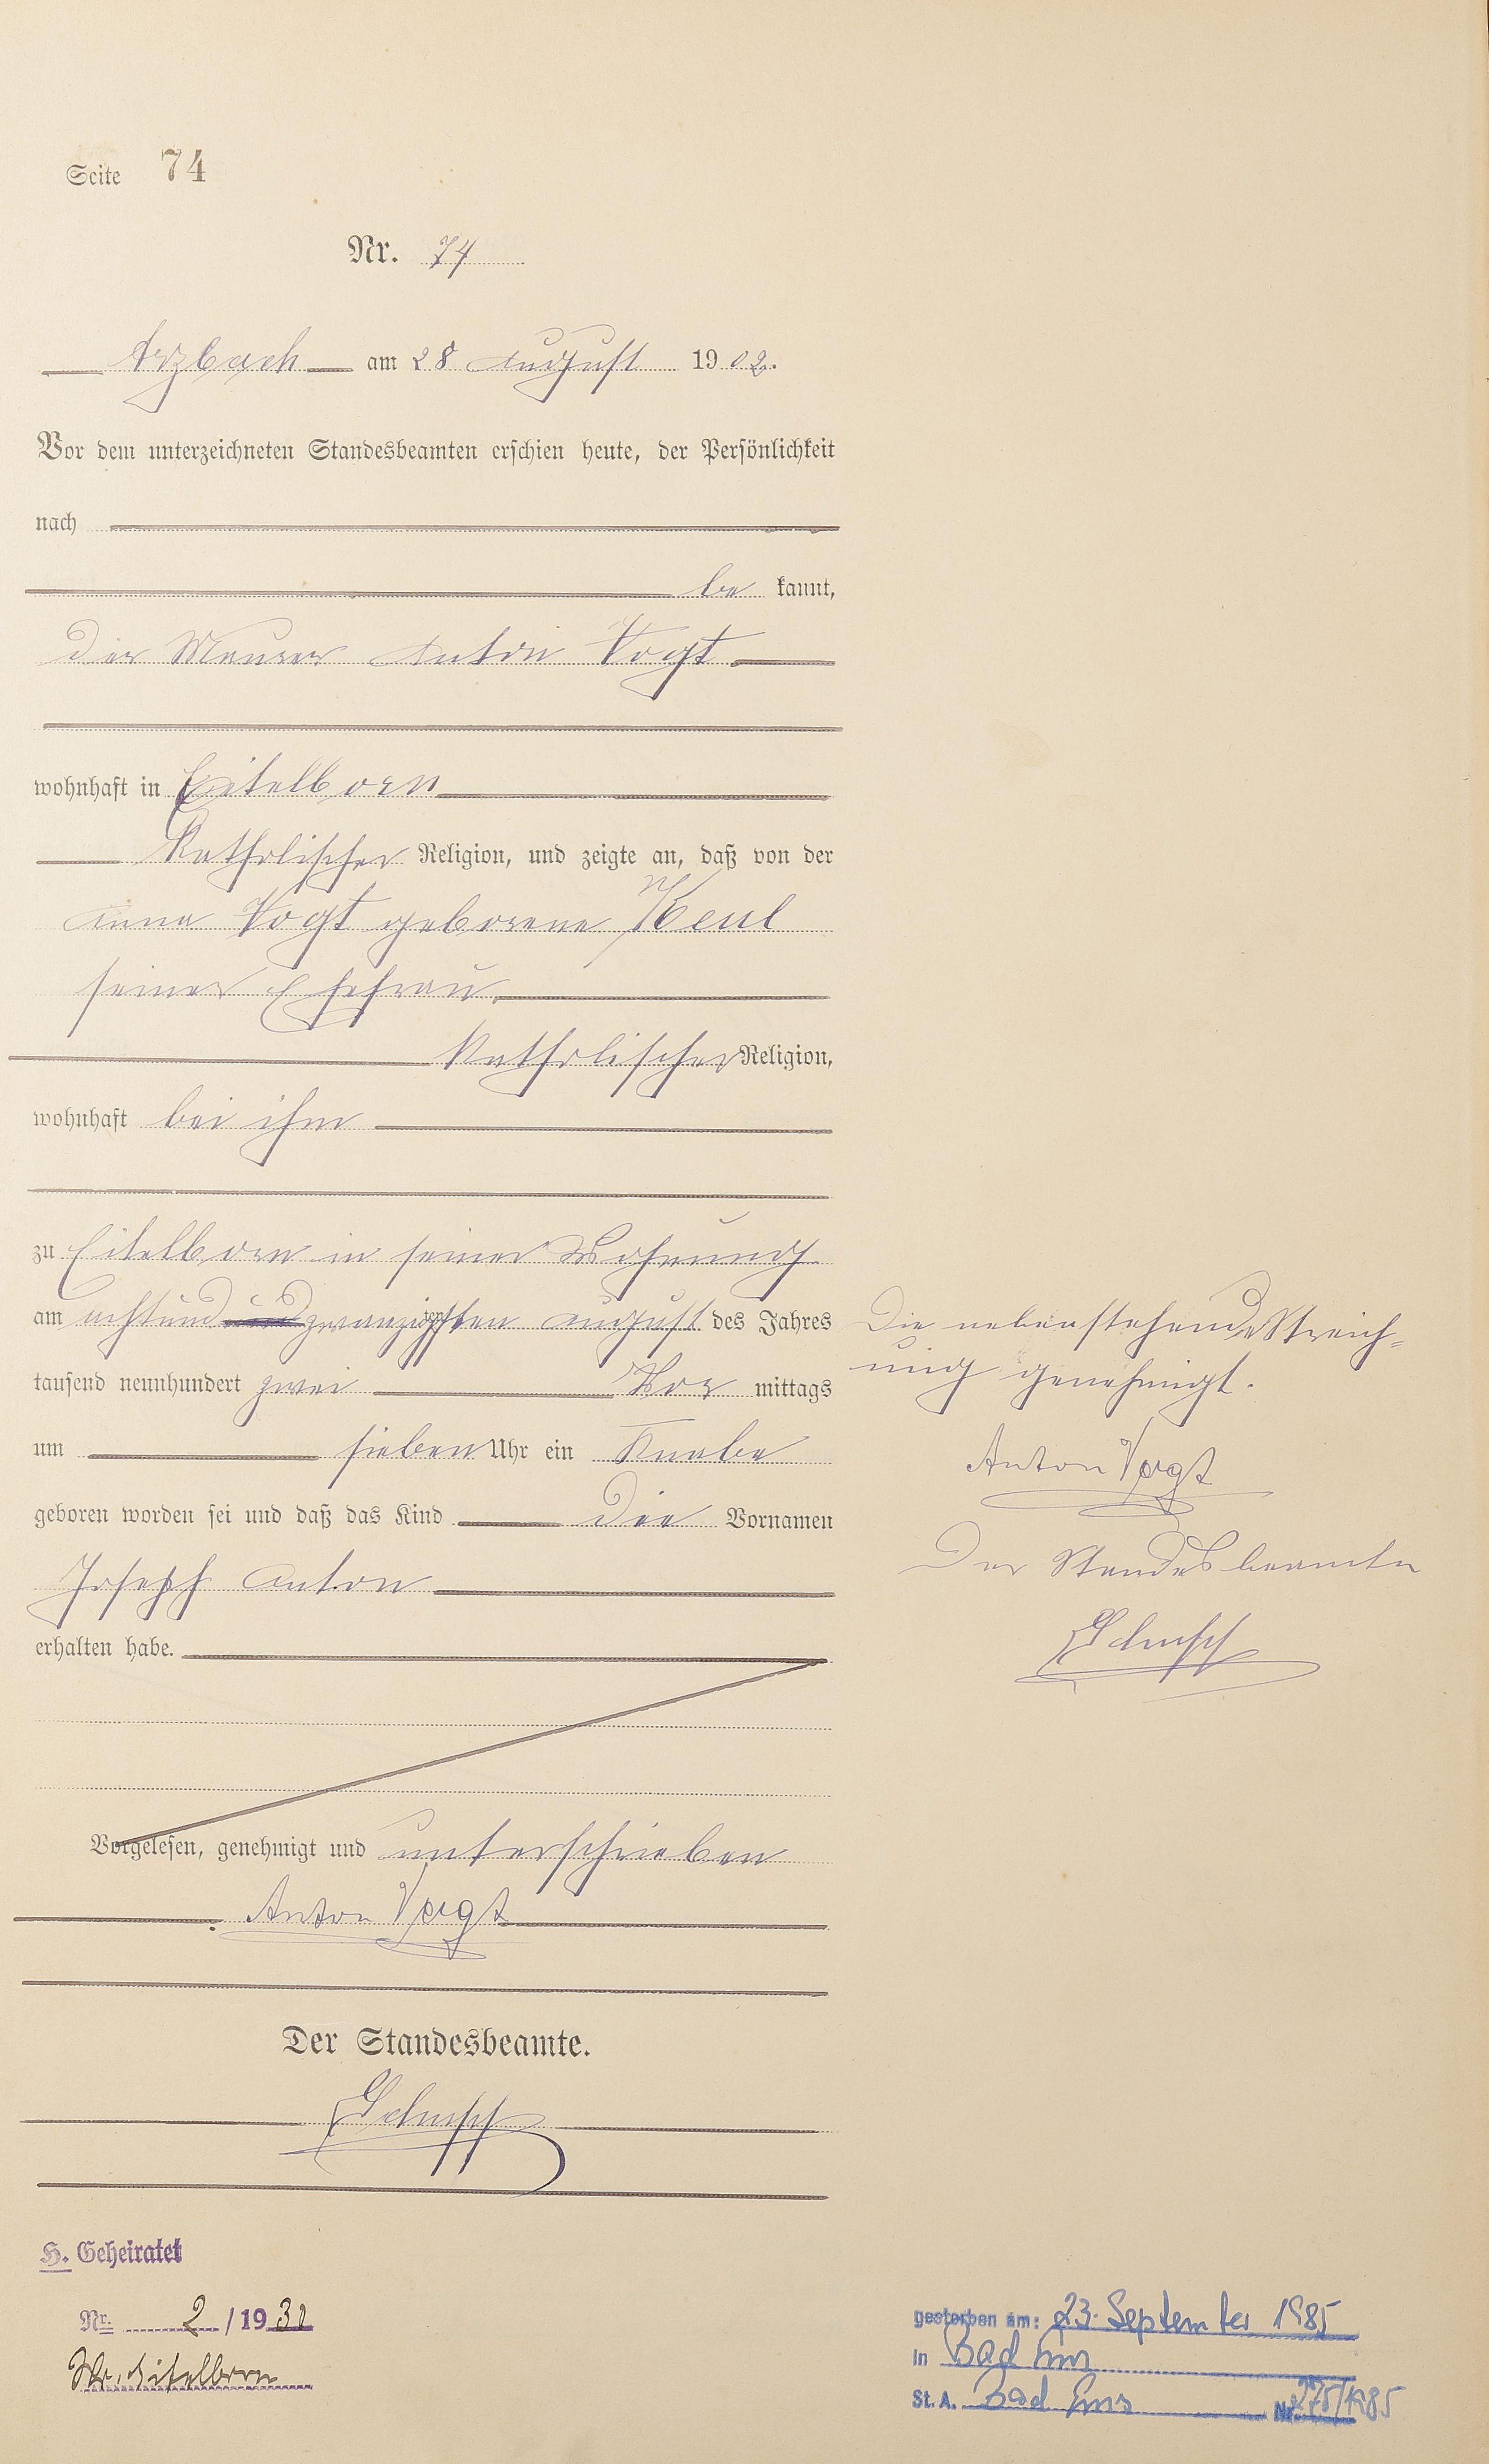 Seite 74
Nr. 74
Arzbach am 28 August 1902.
Vor dem unterzeichneten Standesbeamten erschien heute, der Persönlichkeit
nach
be kannt,
der Maurer Anton Vogt
wohnhaft in Eitelborn
Katholischer Religion, und zeigte an, daß von der
Anna Vogt geborene Keul
seiner Ehefrau
Katholischer Religion,
wohnhaft bei ihm
zu Eitelborn in seiner Wohnung
am achtund zwanzigsten August des Jahres
tausend neunhundert zwei Vor mittags
um sieben Uhr ein Knabe
geboren worden sei und daß das Kind die Vornamen
Joseph Anton
erhalten habe.
Vorgelesen, genehmigt und unterschrieben
Anton Vogt
Der Standesbeamte.
Die nebenstehende Streich=
ung genehmigt.
Anton Vogt
Der Standesbeamte
H. Geheiratet
Nr. 2 / 19
Eitelborn
gestorben am: 23. September 1985
in Bad Ems
St. A. Bad Ems Nr. 275/1985